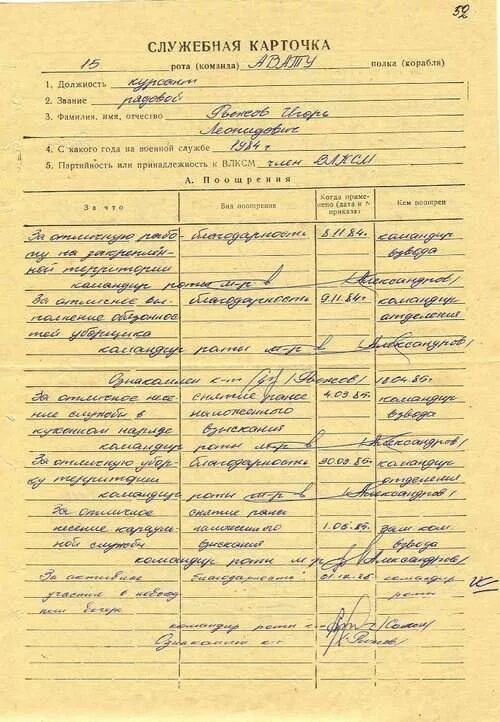 52
СЛУЖЕБНАЯ КАРТОЧКА
15 рота (команда) АВАТУ полка (корабля)
1. Должность курсант
2. Звание рядовой
3. Фамилия, имя, отчество Рыжов Игорь
Леонидович
4. С какого года на военной службе 1984 г
5. Партийность или принадлежность к ВЛКСМ член ВЛКСМ
А. Поощрения
За что Вид поощрения Когда применено (дата и № приказа) Кем поощрен
За отличную рабо- благодарность 8.11.84г. командир
ту на закреплён- взвода
ной территории
командир роты м-р Александров
За отличное вы- благодарность 9.11.84г. командир
полнение обязаннос- отделения
тей уборщика
командир роты м-р Александров
Ознакомлен к-т /Рыжов/ 18.04.85г.
За отличное несе- снятие ранее 4.03.85г. командир
ние службы в наложенного взвода
кухонном наряде взыскания
командир роты м-р Александров
За отличную убор- благодарность 30.03.85г. командир
ку территории отделения
командир роты м-р Александров
За отличное снятие ранее
несение карауль- наложенного 1.05.85г. зам. ком.
ной службы взыскания взвода
командир роты м-р Александров
За активное благодарность 01.12.86 командир
участие в роты
вечере
командир роты к-н
Ознакомлен к-т Рыжов